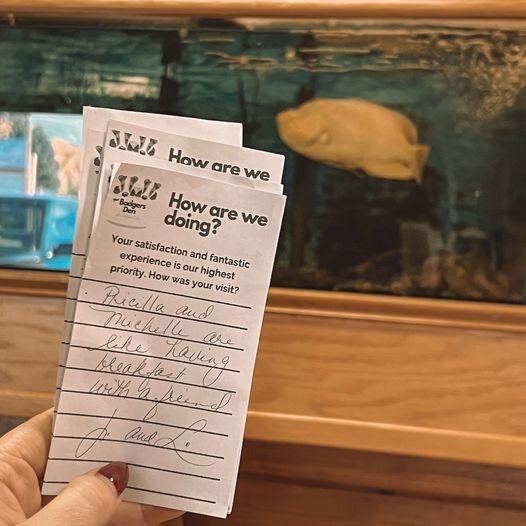 How are we
How are we
doing?
THE Badgers
Den
Your satisfaction and fantastic
experience is our highest
priority. How was your visit?
Ricilla and
Michelle are
like having
breakfast
with a friend
J. and L.